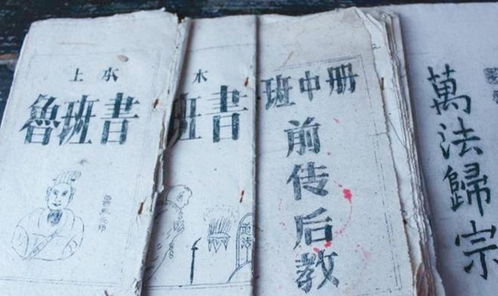 土木
魯班書
木
班書
班中册
前传后教
萬法歸宗